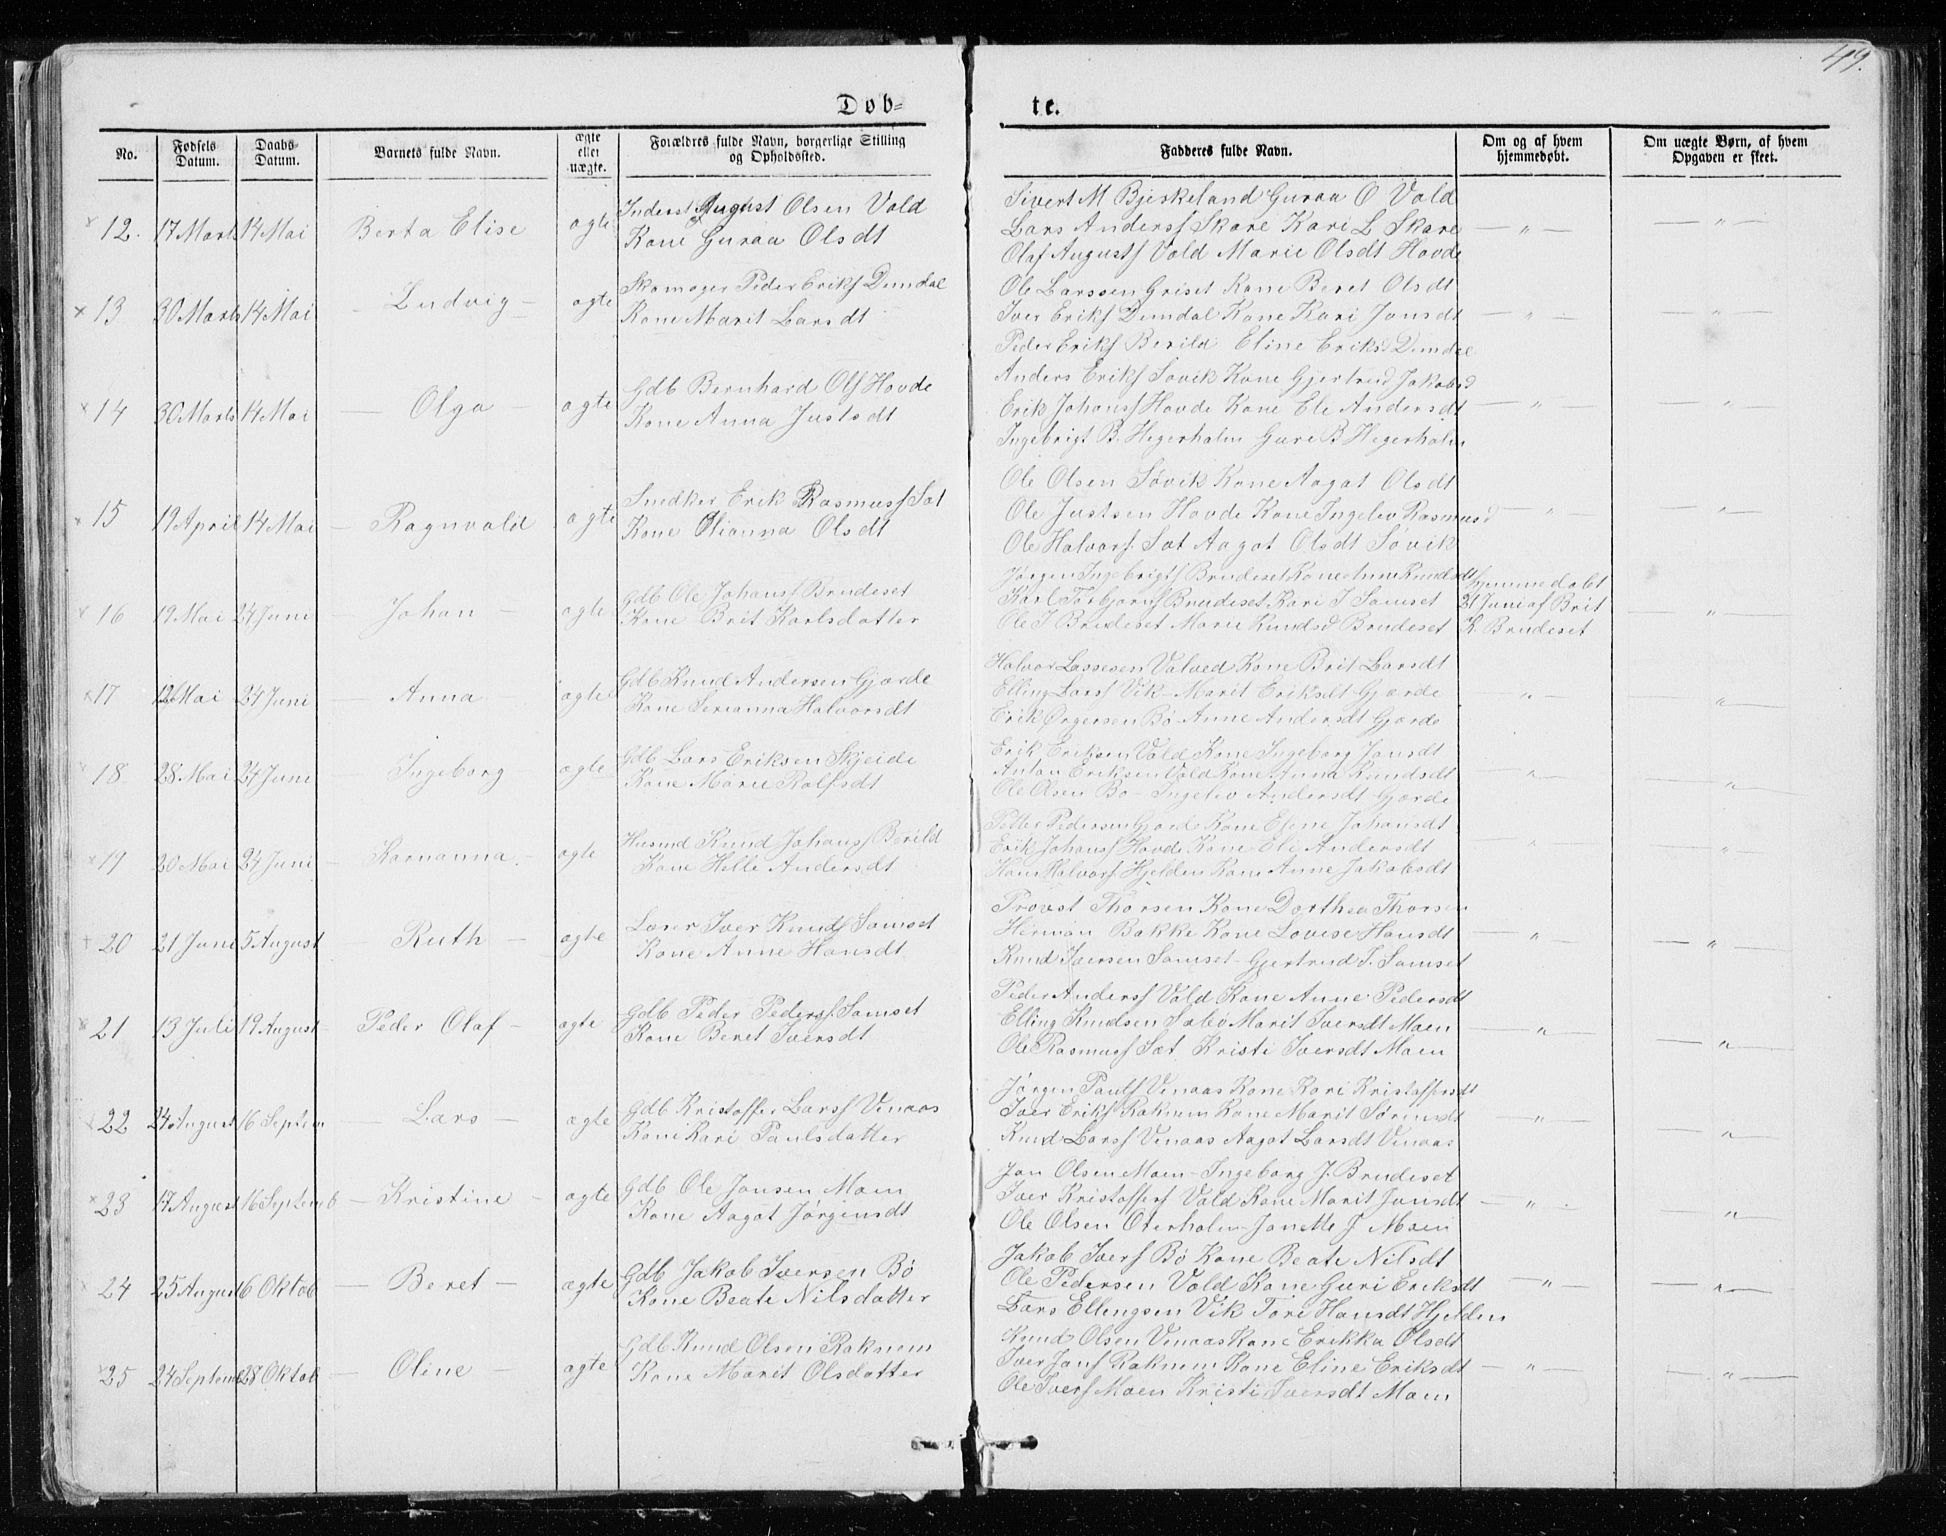 49.
Døb-
te.
No.
Fødsels Datum.
Daabs-Datum.
Barnets fulde Navn.
ægte eller uægte.
Forældres fulde Navn, borgerlige Stilling og Opholdssted.
Fadderes fulde Navn.
Om og af hvem hjemmedøbt.
Om uægte Børn, af hvem Opgaven er skeet.
12. 17 Marts 14 Mai Berta Elise ægte
Inderst August Olsen Vold
Kone Guraa Olsdt
Sivert M Bjerkeland Guraa O Vold
Lars Anderss Skare Kari L Skare — " — — " —
Olaf Augusts Vold Marie Olsdt Hovde
13 30 Marts 14 Mai — Ludvig — ægte
Skomager Peder Eriks Demdal
Kone Marit Larsdt
Ole Larssen Griset Kone Beret Olsdt
Iver Eriks Demdal Kone Kari Jonsdt — " — — " —
Peder Eriks Berild Eline Eriksd Demdal
14 30 Marts 14 Mai — Olga — ægte
Gdb Bernhard Ols Hovde
Kone Anna Justsdt
Anders Eriks Søvik Kone Gjertrud Jakobsd
Erik Johans Hovde Kone Ele Andersdt — " — — " —
Ingebrigt B. Hegerholm Guri B Hegerholm
15 19 April 14 Mai — Ragnvald ægte
Snedker Erik Rasmuss Sæt
Kone Olianna Olsdt
Ole Olsen Søvik Kone Aagot Olsdt
Ole Justsen Hovde Kone Ingelev Rasmusd — " — — " —
Ole Halvors. Sæt Aagot Olsdt Søvik
16 19 Mai 24 Juni — Johan — ægte
Gdb Ole Johans Brudeset
Kone Brit Karlsdatter
Jørgen Ingebrigts Brudeset Kone Anne Knudsdt hjemmedøbt
Karl Torbjørns Brudeset Kari J Samset 21 Juni af Brit — " —
Ole J Brudeset Marie Knudsd Brudeset K Brudeset
17 Mai 24 Juni — Anna — ægte
Gdb Knud Andersen Gjærde
Kone Serianna Halvorsdt
Halvor Lassesen Valved Kone Brit Larsdt
Elling Larss Vik – Marit Eriksdt Gjærde — " — — " —
Erik Ørgersen Bø Anne Andersdt Gjærde
18. 28 Mai 24 Juni — Ingeborg — ægte
Gdb Lars Eriksen Skjeide
Kone Marie Rolfsdt
Erik Eriksen Vold Kone Ingeborg Jonsdt
Anton Eriksen Vold Kone Anna Knudsdt — " — — " —
Ole Olsen Bø – Ingelev Andersdt Gjærde
19 20 Mai 24 Juni — Karnanna. — ægte
Husmd Knud Johans Berild
Kone Helle Andersdt
Petter Pedersen Gjærde Kone Elene Johansdt
Erik Johans Hovde Kone Eli Andersdt — " — — " —
Hans Halvors Hjelden Kone Anne Jakobsdt
20 21 Juni 5 August — Ruth — ægte
Lærer Iver Knuds Samset
Kone Anne Hansdt.
Provst Thorsen Kone Dorthea Thorsen
Herman Bakke Kone Lovise Hansdt — " — — " —
Knud Iversen Samset – Gjertrud I. Samset
21 13 Juli 19 August — Peder Olaf — ægte
Gdb Peder Peders Samset
Kone Beret Iversdt
Peder Anderss Vold Kone Anne Pedersdt
Elling Knudsen Sæbø Marit Iversdt Moen — " — — " —
Ole Rasmuss Sæt Kristi Iversdt Moen
22 24 August 16 Septem — Lars — ægte
Gdb Kristoffer Larss Venaas
Kone Kari Paulsdatter
Jørgen Pauls Venaas Kone Kari Kristoffersdt
Iver Eriks Raknem Kone Marit Sørensdt — " — — " —
Knud Larss Venaas Aagot Larsdt Venaas
23 17 August 16 Septemb — Kristine — ægte
Gdb Ole Jonsen Moen
Kone Aagot Jørgensdt
Jon Olsen Moen – Ingeborg J. Brudeset
Iver Kristoffers Vold Kone Marit Jonsdt — " — — " —
Ole Olsen Oterholm – Janette J Moen
24 25 August 6 Oktob — Beret — ægte
Gdb Jakob Iversen Bø
Kone Beate Nilsdatter
Jakob Ivers Bø Kone Beate Nilsdt
Ole Pedersen Vold Kone Guri Eriksdt — " — — " —
Lars Ellingsen Vik Tori Hansdt Hjelden
25 24 Septemb 28 Oktob — Oline — ægte
Gdb Knud Olsen Raknem
Kone Marit Olsdatter
Knud Olsen Venaas Kone Erikka Olsdt
Iver Jons Raknem Kone Eline Eriksdt — " — — " —
Ole Ivers Moen Kristi Iversdt Moen